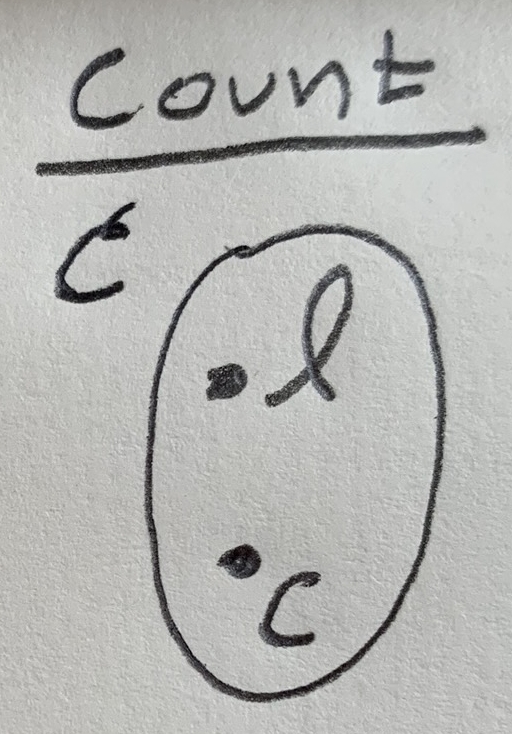 Count
C
l
c